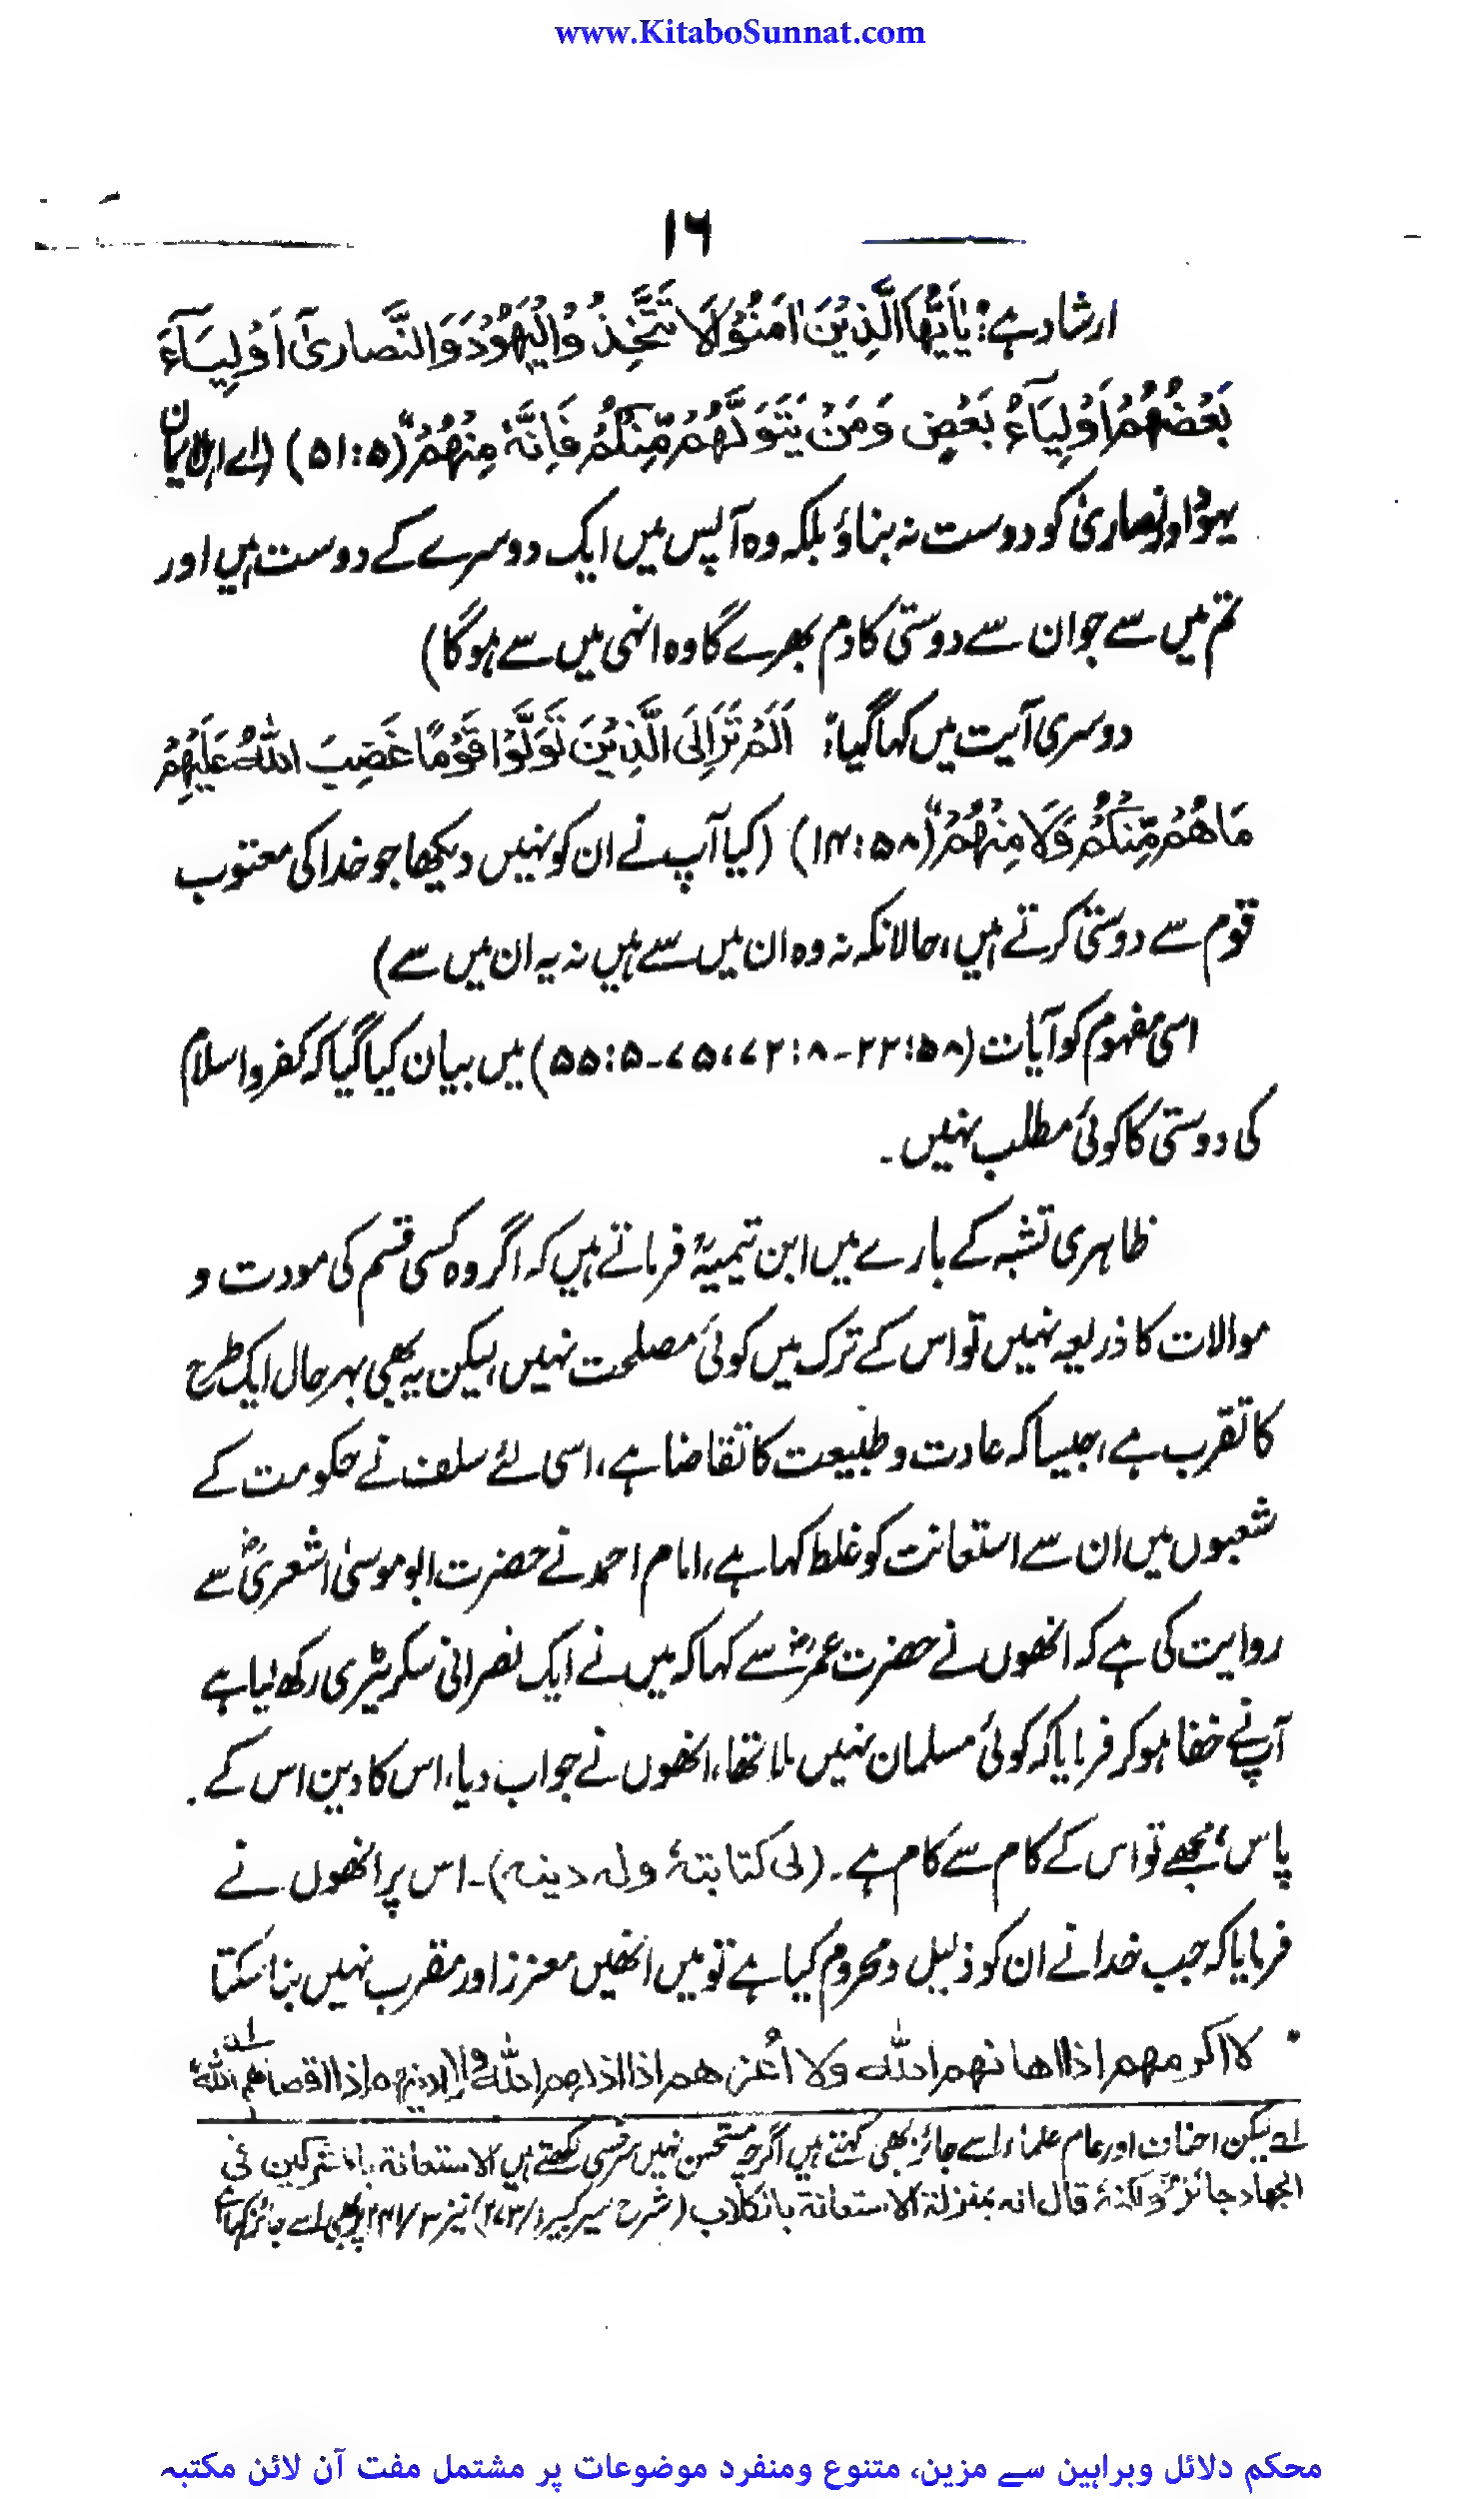 www.KitaboSunnat.com
۱۶
ارشاد ہے: یٰۤاَیُّهَا الَّذِیْنَ اٰمَنُوْا لَا تَتَّخِذُوا الْیَهُوْدَ وَالنَّصَارٰۤی اَوْلِیَآءَ
بَعْضُهُمْ اَوْلِیَآءُ بَعْضٍ وَمَنْ یَّتَوَلَّهُمْ مِّنْکُمْ فَاِنَّهٗ مِنْهُمْ" (۵۱:۵) (اے اہل ایمان
یہود اور نصاریٰ کو دوست نہ بناؤ بلکہ وہ آپس میں ایک دوسرے کے دوست ہیں اور
تم میں سے جو ان سے دوستی کا دم بھرے گا وہ انہی میں سے ہوگا)
دوسری آیت میں کہا گیا: اَلَمْ تَرَ اِلَی الَّذِیْنَ تَوَلَّوْا قَوْمًا غَضِبَ اللّٰهُ عَلَیْهِمْ
مَا هُمْ مِّنْکُمْ وَلَا مِنْهُمْ" (۱۴:۵۸) (کیا آپ نے ان کو نہیں دیکھا جو خدا کی معتوب
قوم سے دوستی کرتے ہیں، حالانکہ نہ وہ ان میں سے ہیں نہ یہ ان میں سے)
اسی مفہوم کو آیات (۲۲:۵۸ - ۷۲:۸، ۷۵ - ۵۵:۵) میں بیان کیا گیا کہ کفر و اسلام
کی دوستی کا کوئی مطلب نہیں۔
ظاہری تشبہ کے بارے میں ابن تیمیہؒ فرماتے ہیں کہ اگر وہ کسی قسم کی مودت و
موالات کا ذریعہ نہیں تو اس کے ترک میں کوئی مصلحت نہیں، لیکن یہ بھی بہرحال ایک طرح
کا تقرب ہے، جیسا کہ عادت و طبیعت کا تقاضا ہے، اسی لئے سلف نے حکومت کے
شعبوں میں ان سے استعانت کو غلط کہا ہے، امام احمد نے حضرت ابو موسیٰ اشعریؓ سے
روایت کی ہے کہ انھوں نے حضرت عمرؓ سے کہا کہ میں نے ایک نصرانی سکریٹری رکھ لیا ہے
آپ نے خفا ہو کر فرمایا کہ کوئی مسلمان نہیں ملا تھا، انھوں نے جواب دیا، اس کا دین اس کے
پاس، مجھے تو اس کے کام سے کام ہے۔ (لی کتابتہٗ ولہ دینہ)۔ اس پر انھوں نے
فرمایا کہ جب خدا نے ان کو ذلیل و محروم کیا ہے تو میں انھیں معزز اور مقرب نہیں بنا سکتا
لا اکرمهم اذا اهانهم اللّٰه ولا اُعزهم اذا اذلهم اللّٰه ولا ادنیهم اذا اقصاهم اللّٰه ۱ے
۱ے لیکن احناف اور عام علماء اسے جائز بھی کہتے ہیں اگرچہ مستحسن نہیں سرخسی لکھتے ہیں الاستعانة بالمشرکین فی
الجهاد جائز ولکنهٗ قال انه بمنزلة الاستعانة بالکلاب (شرح سیر کبیر نیز
محکم دلائل وبراہین سے مزین، متنوع ومنفرد موضوعات پر مشتمل مفت آن لائن مکتبہ